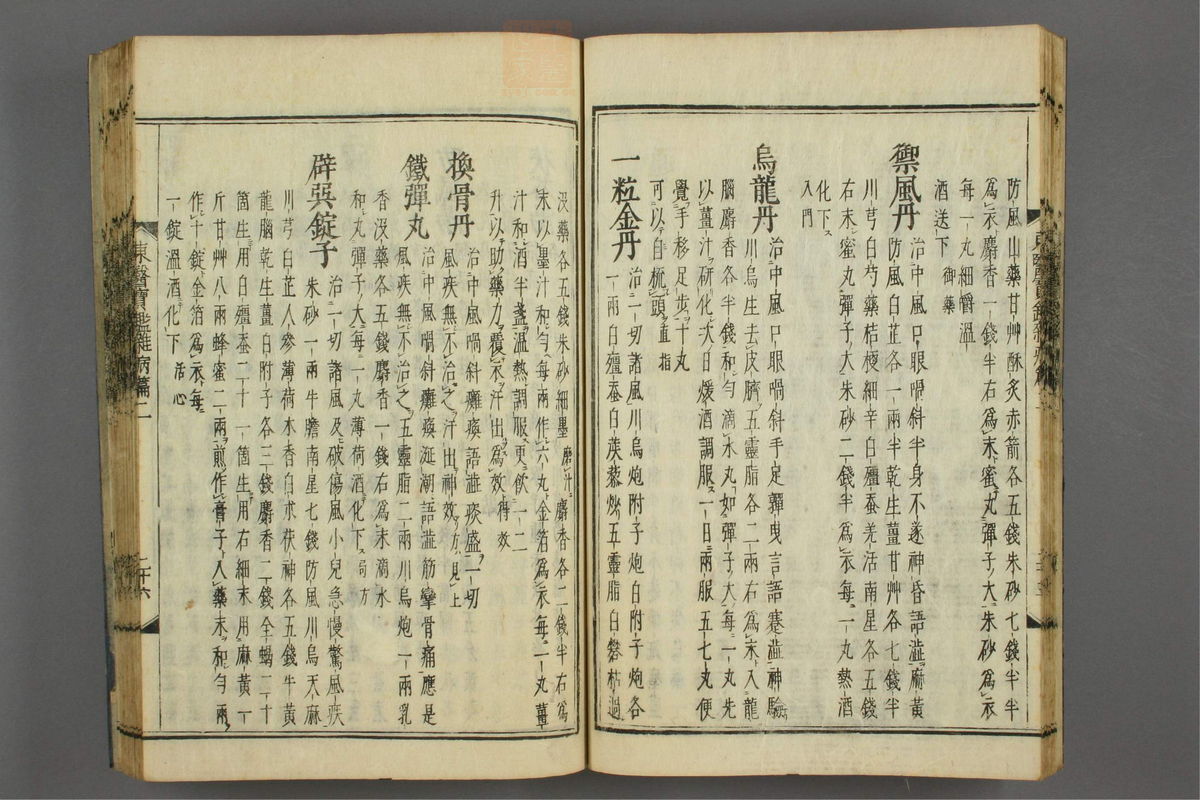 防風山藥甘艸酥炙赤箭各五錢朱砂七錢半半
爲衣麝香一錢半右爲末蜜丸彈子大朱砂爲衣
每一丸細嚼溫
酒送下 御藥
禦風丹 治中風口眼喎斜半身不遂神昏語澁麻黃
防風白芷各一兩半乾生薑甘艸各七錢半
川芎白芍藥桔梗細辛白殭蚕羌活南星各五錢
右末蜜丸彈子大朱砂二錢半爲衣每一丸熱酒
化下
入門
烏龍丹 治中風口眼喎斜手足嚲曳言語蹇澁神驗
川烏生去皮臍五靈脂各二兩右爲末入龍
腦麝香各半錢和勻滴水丸如彈子大每一丸先
以薑汁研化次日煖酒調服一日兩服五七丸便
覺手移足步十丸
可以自梳頭 直指
一粒金丹 治一切諸風川烏炮附子炮白附子炮各
一兩白殭蚕白蒺藜炒五靈脂白礬枯過
沒藥各五錢朱砂細墨磨汁麝香各二錢半右爲
末以墨汁和勻每兩作六丸金箔爲衣每一丸薑
汁和酒半盞溫熱調服更飮一二
升以助藥力覆衣汗出爲效 得效
換骨丹 治中風喎斜癱瘓語澁痰盛一切
風疾無不治之汗出神效 方見上
鐵彈丸 治中風喎斜癱瘓涎潮語澁筋攣骨痛應是
風疾無不治之五靈脂二兩川烏炮一兩乳
香沒藥各五錢麝香一錢右爲末滴水
和丸彈子大每一丸薄荷酒化下 局方
辟巽錠子 治一切諸風及破傷風小兒急慢驚風疾
朱砂一兩牛膽南星七錢防風川烏天麻
川芎白芷人參薄荷木香白朮茯神各五錢牛黃
龍腦乾生薑白附子各三錢麝香二錢全蝎二十
箇生用白殭蚕二十一箇生用右細末用麻黃一
斤甘艸八兩蜂蜜二兩煎作膏子入藥末和勻兩
作十錠金箔爲衣每
一錠溫酒化下 活心
東醫寶鑑雜病篇二
二十六